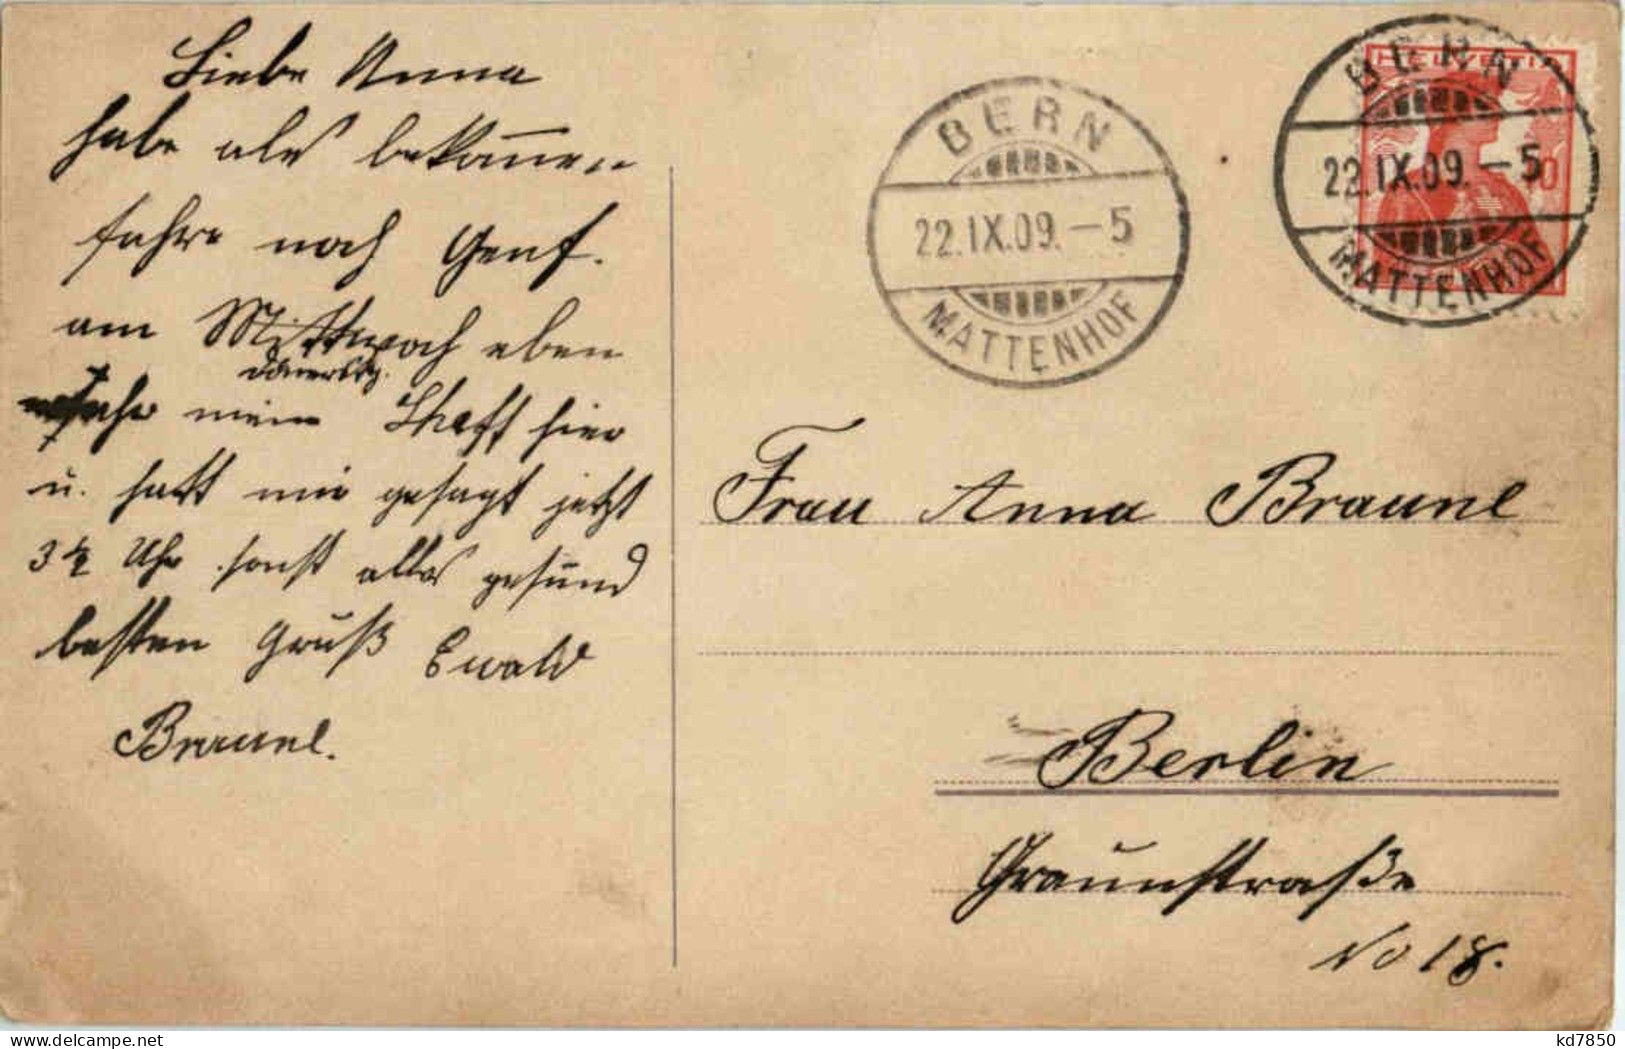 Liebe Anna
habe als bekommen
fahre nach Genf.
am Mittwoch eben
Donnerstg.
meine hier
u. hatt mir gesagt jetzt
3 ½ Uhr sonst alles gesund
besten Gruß Ewald
Braunl.
BERN
22.IX.09.-5
MATTENHOF
HELVETIA
10
BERN
22.IX.09.-5
MATTENHOF
Frau Anna Braunl
Berlin
Graunstraße
No 18.
kd7850